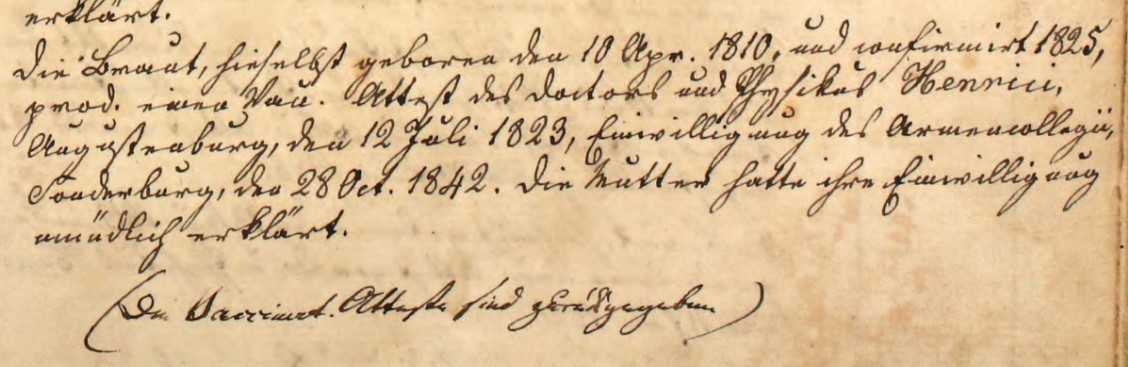 erklärt.
Die Braut, hieselbst geboren den 10 Apr. 1810, und confirmirt 1825,
prod. einen Vacc. Attest des Doctors und Physikus Henrici,
Augustenburg, den 12 Juli 1823, Einwilligung des Armencollegii,
Sonderburg, den 28 Oct. 1842. Die Mutter hatte ihre Einwilligung
mündlich erklärt.
(Die Vaccinat. Atteste sind zurückgegeben)